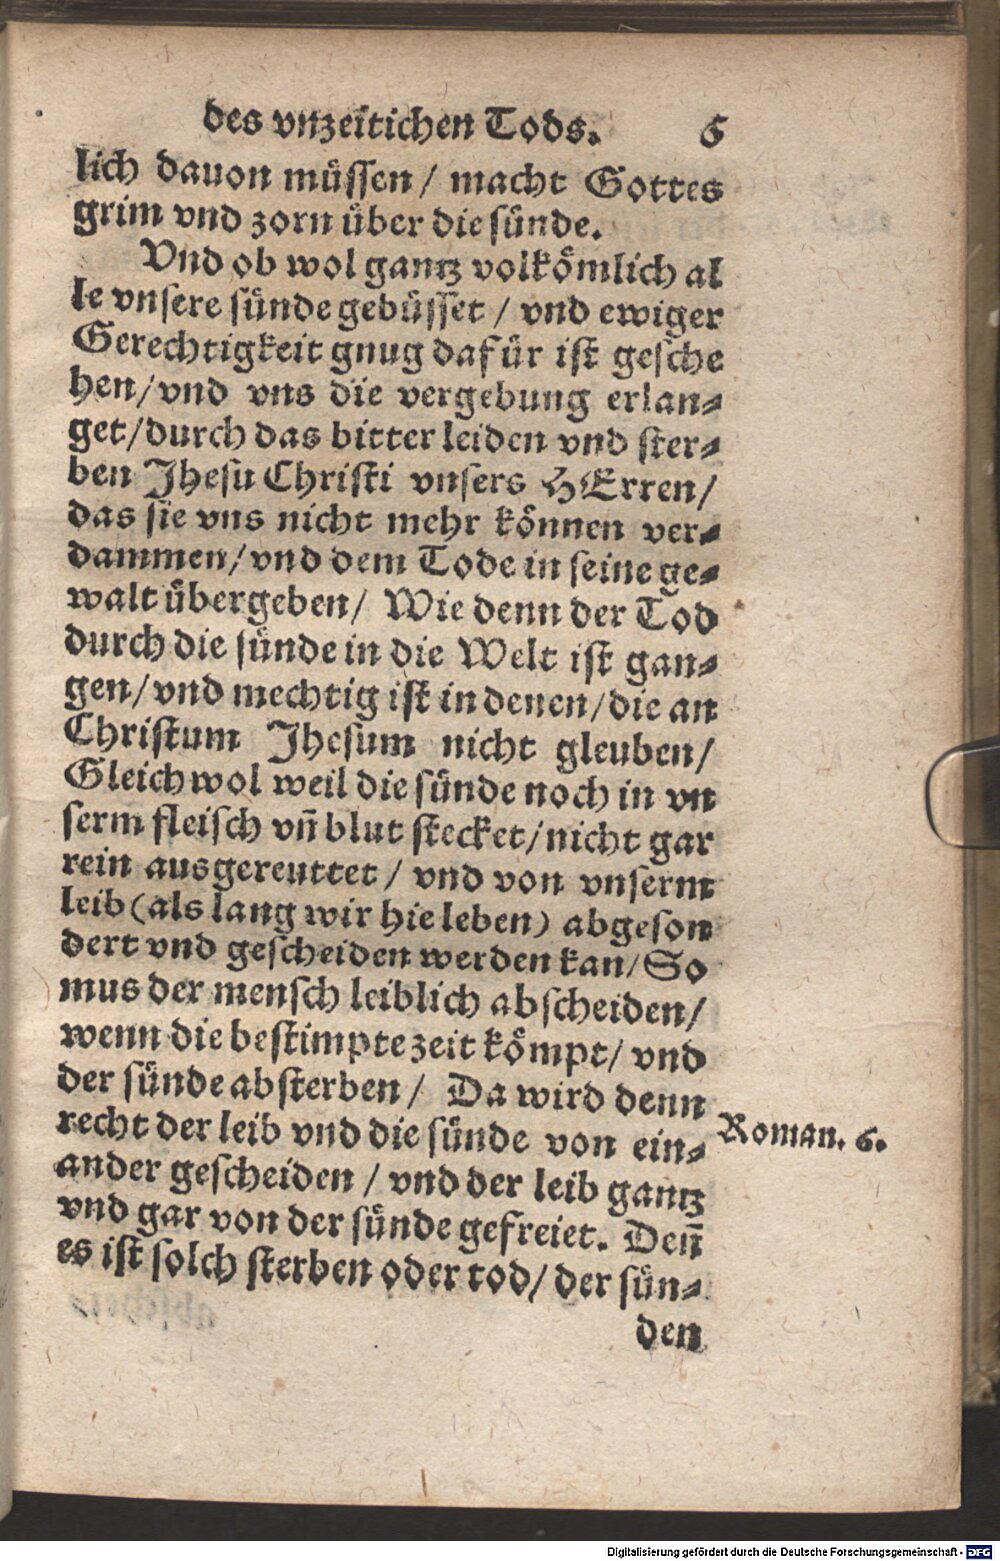 des vnzeitichen Tods. 6
lich dauon müssen / macht Gottes
grim vnd zorn über die sünde.
Vnd ob wol gantz volkömlich al
le vnsere sünde gebüsset / vnd ewiger
Gerechtigkeit gnug dafür ist gesche
hen/vnd vns die vergebung erlan⸗
get/durch das bitter leiden vnd ster⸗
ben Jhesu Christi vnsers HErren/
das sie vns nicht mehr können ver⸗
dammen/vnd dem Tode in seine ge⸗
walt übergeben/ Wie denn der Tod
durch die sünde in die Welt ist gan⸗
gen/vnd mechtig ist in denen/die an
Christum Jhesum nicht gleuben/
Gleichwol weil die sünde noch in vn
serm fleisch vn̄ blut stecket/nicht gar
rein ausgereuttet / vnd von vnserm
leib (als lang wir hie leben) abgeson
dert vnd gescheiden werden kan/So
mus der mensch leiblich abscheiden/
wenn die bestimpte zeit kömpt/ vnd
der sünde absterben / Da wird denn
recht der leib vnd die sünde von ein⸗
Roman. 6.
ander gescheiden / vnd der leib gantz
vnd gar von der sünde gefreiet. Den̄
es ist solch sterben oder tod/ der sün⸗
den
Digitalisierung gefördert durch die Deutsche Forschungsgemeinschaft - DFG